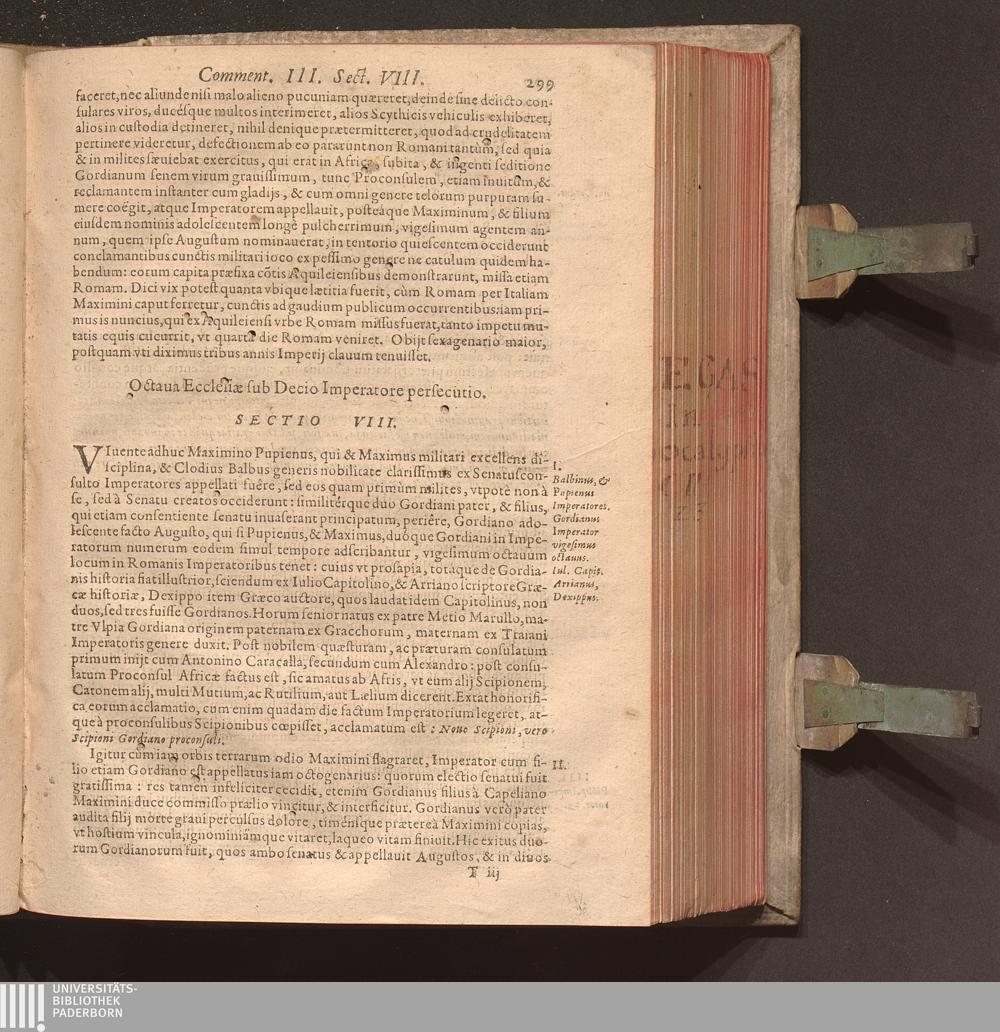 Comment. III. Sect. VIII. 299
faceret, nec aliunde nisi malo alieno pucuniam quæreret, deinde sine delicto con-
sulares viros, ducésque multos interimeret, alios Scythicis vehiculis exhiberet,
alios in custodia detineret, nihil denique prætermitteret, quod ad crudelitatem
pertinere videretur, defectionem ab eo pararunt non Romani tantùm, sed quia
& in milites sæuiebat exercitus, qui erat in Africa, subita, & ingenti seditione
Gordianum senem virum grauissimum, tunc Proconsulem, etiam inuitum, &
reclamantem instanter cum gladijs, & cum omni genere telorum purpuram su-
mere coëgit, atque Imperatorem appellauit, posteàque Maximinum, & filium
eiusdem nominis adolescentem longè pulcherrimum, vigesimum agentem an-
num, quem ipse Augustum nominauerat, in tentorio quiescentem occiderunt
conclamantibus cunctis militari ioco ex pessimo genere ne catulum quidem ha-
bendum: eorum capita præfixa cõtis Aquileiensibus demonstrarunt, missa etiam
Romam. Dici vix potest quanta vbique lætitia fuerit, cùm Romam per Italiam
Maximini caput ferretur, cunctis ad gaudium publicum occurrentibus: iam pri-
mus is nuncius, qui ex Aquileiensi vrbe Romam missus fuerat, tanto impetu mu-
tatis equis cucurrit, vt quarta die Romam veniret. Obijt sexagenario maior,
postquam vti diximus tribus annis Imperij clauum tenuisset.
Octaua Ecclesiæ sub Decio Imperatore persecutio.
SECTIO VIII.
VIuente adhuc Maximino Pupienus, qui & Maximus militari excellens di-
sciplina, & Clodius Balbus generis nobilitate clarissimus ex Senatuscon-
sulto Imperatores appellati fuêre, sed eos quam primùm milites, vtpotè non à
se, sed à Senatu creatos occiderunt: similitérque duo Gordiani pater, & filius,
qui etiam consentiente senatu inuaserant principatum, periêre, Gordiano ado-
lescente facto Augusto, qui si Pupienus, & Maximus, duóque Gordiani in Impe-
ratorum numerum eodem simul tempore adscribantur, vigesimum octauum
locum in Romanis Imperatoribus tenet: cuius vt prosapia, totáque de Gordia-
nis historia fiat illustrior, sciendum ex Iulio Capitolino, & Arriano scriptore Græ-
cæ historiæ, Dexippo item Græco auctore, quos laudat idem Capitolinus, non
duos, sed tres fuisse Gordianos. Horum senior natus ex patre Metio Marullo, ma-
tre Vlpia Gordiana originem paternam ex Gracchorum, maternam ex Traiani
Imperatoris genere duxit. Post nobilem quæsturam, ac præturam consulatum
primum inijt cum Antonino Caracalla, secundum cum Alexandro: post consu-
latum Proconsul Africæ factus est, sic amatus ab Afris, vt eum alij Scipionem,
Catonem alij, multi Mutium, ac Rutilium, aut Lælium dicerent. Extat honorifi-
ca eorum acclamatio, cum enim quadam die factum Imperatorium legeret, at-
que à proconsulibus Scipionibus cœpisset, acclamatum est: Nouo Scipioni, vero
Scipioni Gordiano proconsuli.
Igitur cùm iam orbis terrarum odio Maximini flagraret, Imperator cum fi-
lio etiam Gordiano est appellatus iam octogenarius: quorum electio senatui fuit
gratissima: res tamen infeliciter cecidit, etenim Gordianus filius à Capeliano
Maximini duce commisso prælio vincitur, & interficitur. Gordianus verò pater
audita filij morte graui perculsus dolore, timénsque præterea Maximini copias,
vt hostium vincula, ignominiámque vitaret, laqueo vitam finiuit. Hic exitus duo-
rum Gordianorum fuit, quos ambo senatus & appellauit Augustos, & in diuos
T iij
I.
Balbinus, &
Pupienus
Imperatores.
Gordianus
Imperator
vigesimus
octauus.
Iul. Capit.
Arrianus,
Dexippus.
II.
UNIVERSITÄTS-
BIBLIOTHEK
PADERBORN